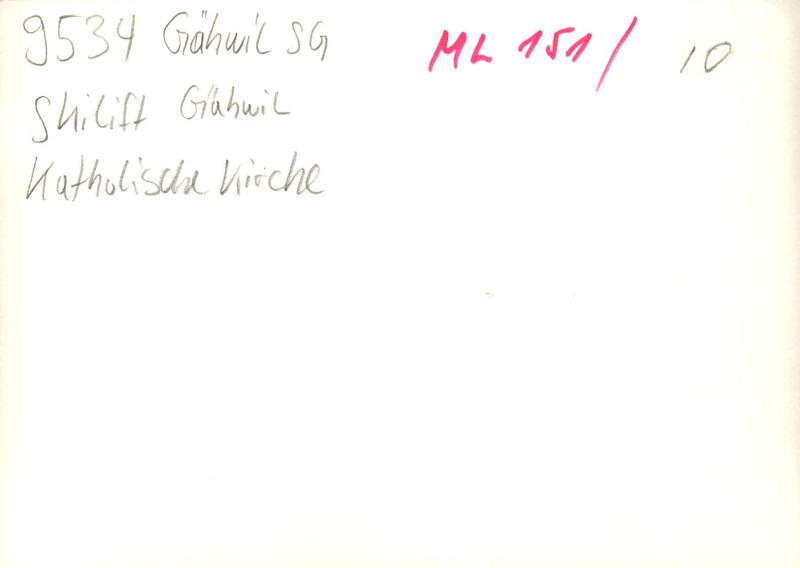 9534 Gähwil SG ML 151/ 10
Skilift Gähwil
Katholische Kirche